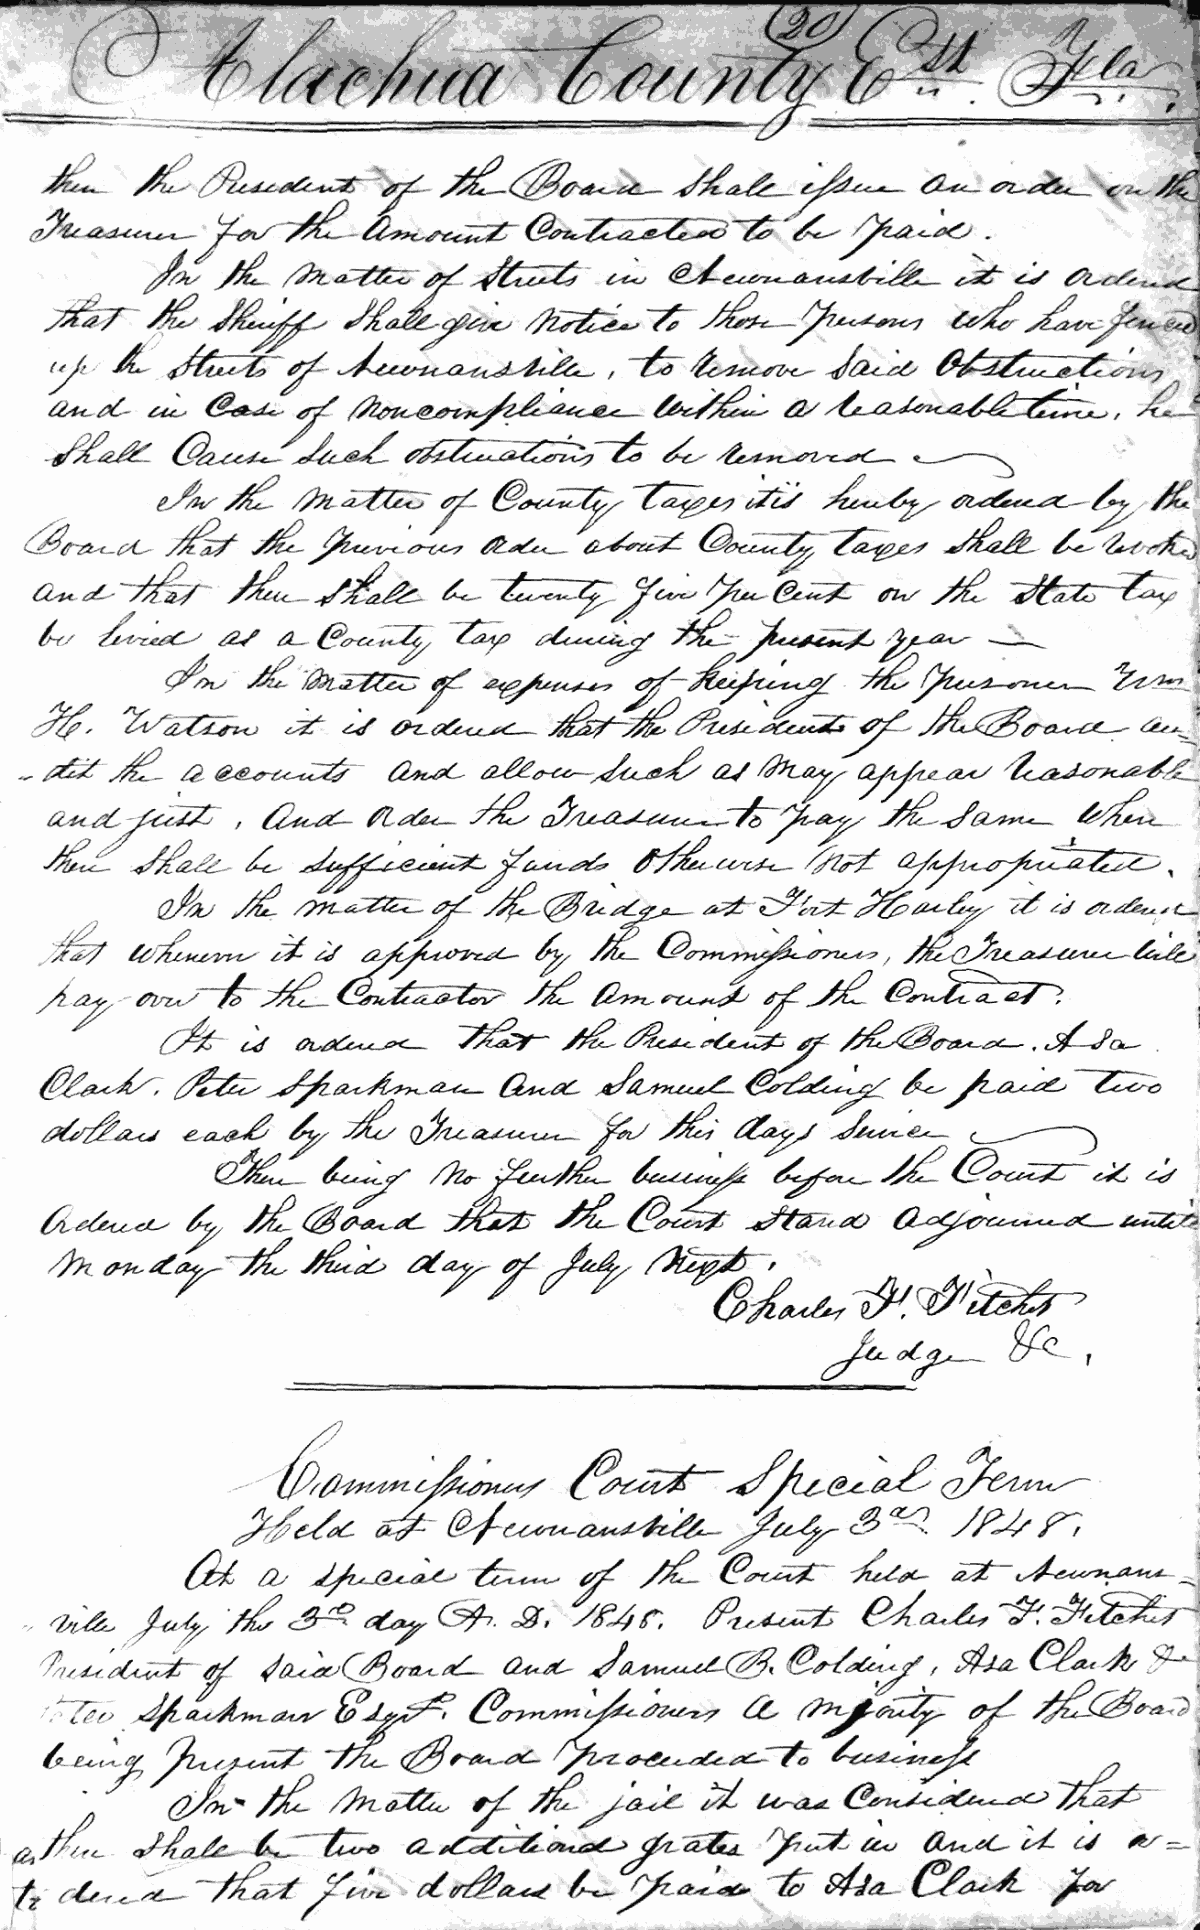 20
Alachua County Est. Fla.
then the President of the Board shall issue an order on the
Treasurer for the Amount Contracted to be paid.
In the matter of Streets in Newnansville it is ordered
that the Sheriff shall give notice to those persons who have fenced
up the Streets of Newnansville, to remove said Obstructions
and in Case of noncompliance within a reasonable time, he
shall Cause such obstructions to be removed
In the matter of County taxes it is hereby ordered by the
Board that the previous order about County taxes shall be revoked
and that there shall be twenty five per Cent on the State tax
be levied as a County tax during the present year
In the matter of expenses of keeping the prisoner Wm
H. Watson it is ordered that the President of the Board au-
-dit the accounts and allow such as may appear reasonable
and just, and order the Treasurer to pay the same when
there shall be sufficient funds otherwise not appropriated.
In the matter of the Bridge at Fort Harley it is ordered
that whenever it is approved by the Commissioners, the Treasurer will
pay over to the Contractor the amount of the Contract.
It is ordered that the President of the Board. Asa
Clark. Peter Sparkman and Samuel Colding be paid two
dollars each by the Treasurer for this days service
There being no further business before the Court it is
Ordered by the Board that the Court stand adjourned until
Monday the third day of July next.
Charles F. Fitchet
Judge &c.
Commissioners Court Special Term
Held at Newnansville July 3rd 1848.
At a special term of the Court held at Newnans-
-ville July the 3rd day A. D. 1848. Present Charles F. Fitchet
President of said Board and Samuel B. Colding, Asa Clark &
Peter Sparkman Esqr. Commissioners a mjority of the Board
being present the Board proceeded to business
In the matter of the jail it was Considered that
there shall be two additional grates put in and it is or=
dered that five dollars be paid to Asa Clark for